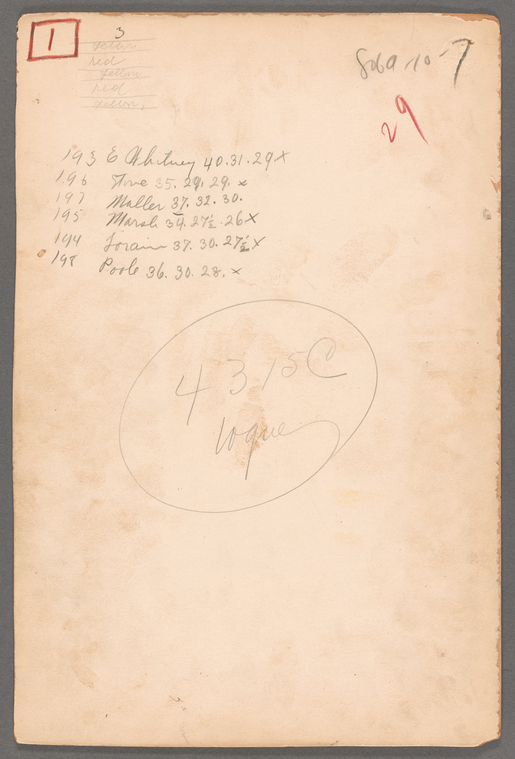 1
3
yellow
red
yellow
red
yellow
8069-10-7
29
193 E Whitney 40.31.29 x
196 35. 29. 29. x
197 Maller 37. 32. 30.
195 Marsh 34. 27½ . 26 X
194 Lorain 37. 30. 27½ X
198 Poole 36. 30. 28. x
4315C
Vogue